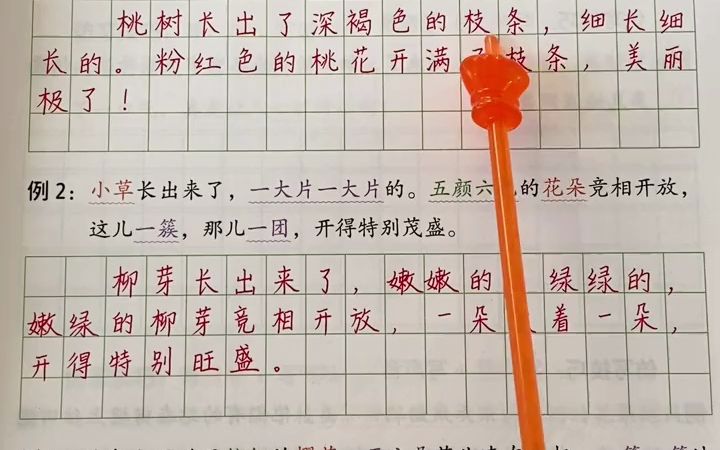 桃树长出了深褐色的枝条，细长细
长的。粉红色的桃花开满 枝条，美丽
极了！
例2：小草长出来了，一大片一大片的。五颜六 的花朵竞相开放，
这儿一簇，那儿一团，开得特别茂盛。
柳芽长出来了，嫩嫩的 绿绿的，
嫩绿的柳芽竞相开放，一朵 着一朵，
开得特别旺盛。